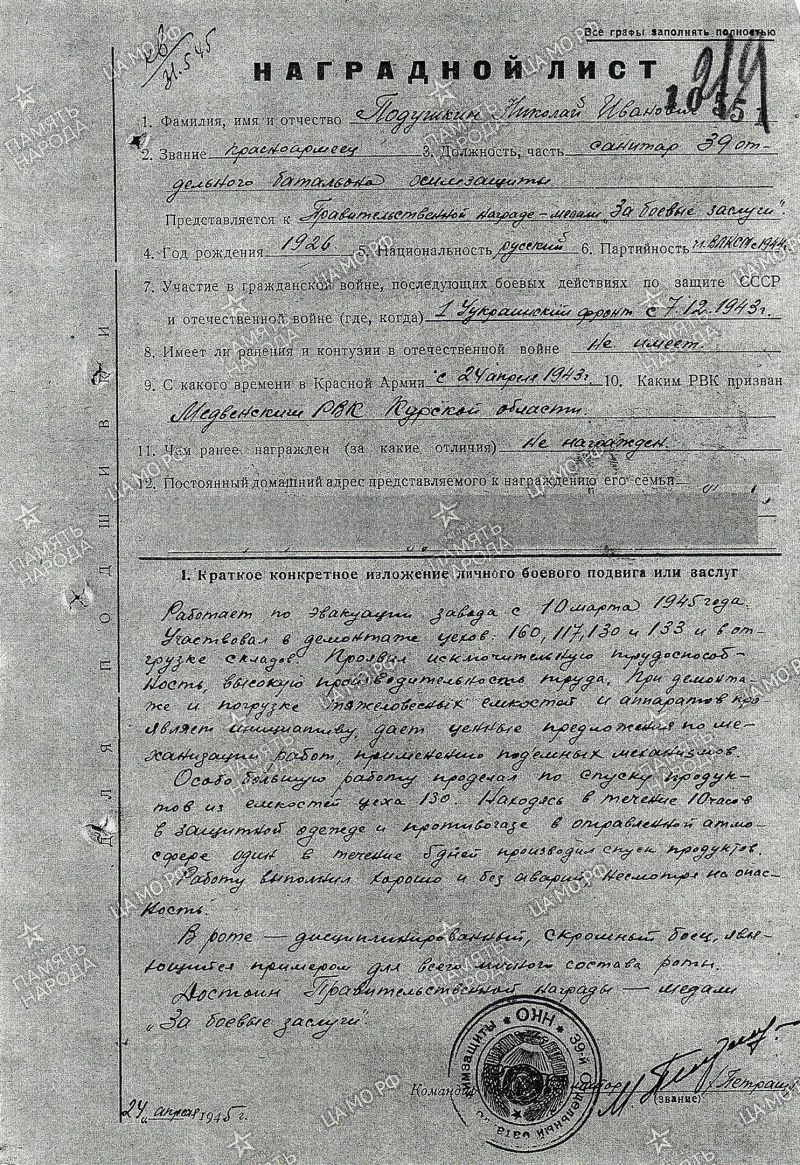 Все графы заполнять полностью
кв
31.5.45
219
НАГРАДНОЙ ЛИСТ
1. Фамилия, имя и отчество Подушкин Николай Иванович
2. Звание красноармеец 3. Должность, часть санитар 39 от-
дельного батальона химзащиты
Представляется к Правительственной награде – медали „За боевые заслуги".
4. Год рождения 1926 5. Национальность русский 6. Партийность чл. ВЛКСМ с 1944
7. Участие в гражданской войне, последующих боевых действиях по защите СССР
и отечественной войне (где, когда) 1 Украинский фронт с 7.12.1943г.
8. Имеет ли ранения и контузии в отечественной войне Не имеет.
9. С какого времени в Красной Армии с 24 апреля 1943г. 10. Каким РВК призван
Медвенским РВК Курской области.
11. Чем ранее награжден (за какие отличия) Не награжден.
12. Постоянный домашний адрес представляемого к награждению его семьи
ДЛЯ ПОДШИВКИ
1. Краткое конкретное изложение личного боевого подвига или заслуг
Работает по эвакуации завода с 10 марта 1945 года.
Участвовал в демонтаже цехов: 160, 117, 130 и 133 и в от-
грузке складов. Проявил исключительную трудоспособ-
ность, высокую производительность труда. При демонта-
же и погрузке тяжеловесных емкостей и аппаратов про-
являет инициативу, дает ценные предложения по ме-
ханизации работ, применению подъемных механизмов.
Особо большую работу проделал по спуску продук-
тов из емкостей цеха 130. Находясь в течение 10 часов
в защитной одежде и противогазе в отравленной атмо-
сфере один в течение 6 дней производил спуск продуктов.
Работу выполнил хорошо и без аварий, несмотря на опас-
ность.
В роте – дисциплинированный, скромный боец, явл-
яющийся примером для всего личного состава роты.
Достоин Правительственной награды – медали
„За боевые заслуги".
НКО 39-й Отдельный бата химзащиты
Командир
(звание)
24 апреля 1945г.
ПАМЯТЬ НАРОДА
ЦАМО.РФ